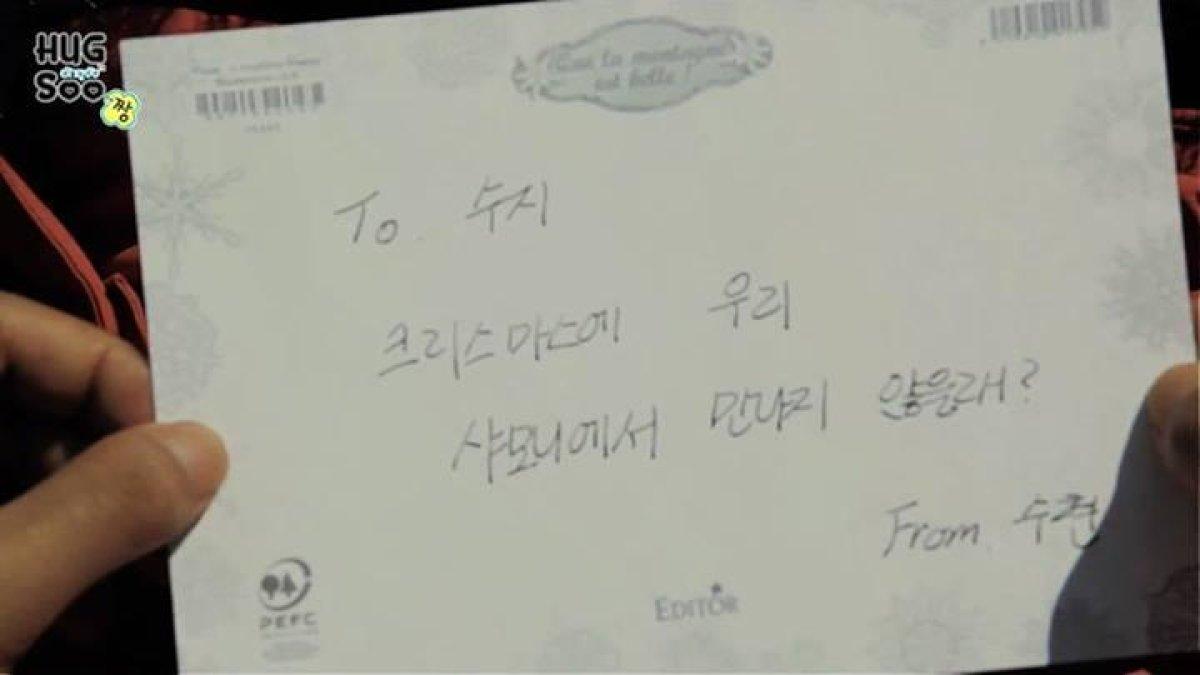 HUG
SOO
짱
Que la montagne
est belle!
To. 수지
크리스마스에 우리
샤모니에서 만나지 않을래?
From. 수현
EDITOR
PEFC